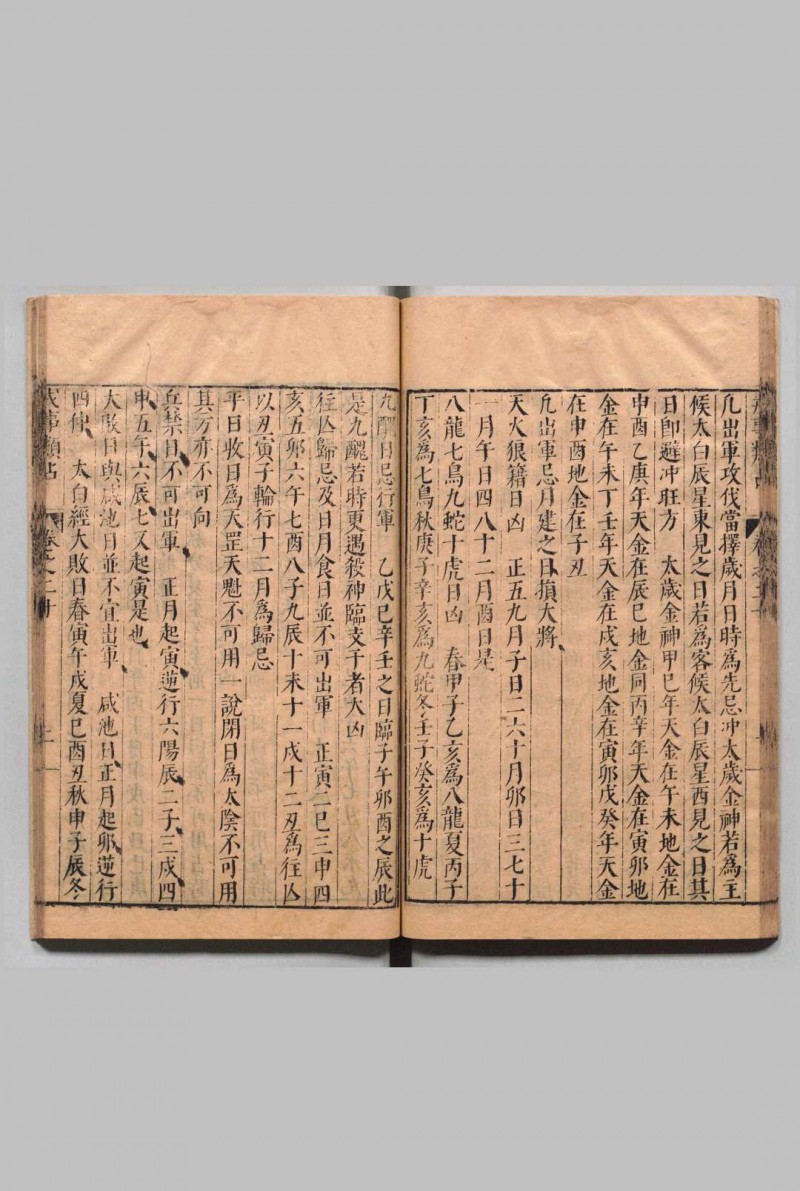 凢出軍攻伐當擇歲月日時爲先忌冲太歲金神若爲主
候太白辰星東見之日若爲客候太白辰星西見之日其
日即避冲旺方　太歲金神甲巳年天金在午未地金在
申酉乙庚年天金在辰巳地金同丙辛年天金在寅卯地
金在午未丁壬年天金在戌亥地金在寅卯戊癸年天金
在申酉地金在子丑
凢出軍忌月建之日損大將
天火狼籍日凶　正五九月子日二六十月卯日三七十
一月午日四八十二月酉日是
八龍七鳥九蛇十虎日凶　春甲子乙亥爲八龍夏丙子
丁亥爲七鳥秋庚子辛亥爲九蛇冬壬子癸亥爲十虎
九醜日忌行軍　乙戊巳辛壬之日臨子午卯酉之辰此
是九醜若時更遇殺神臨支干者大凶
徃亡歸忌及日月食日並不可出軍　正寅二巳三申四
亥五卯六午七酉八子九辰十未十一戌十二丑爲徃亡
以丑寅子輪行十二月爲歸忌
平日收日爲天罡天魁不可用一說閉日爲太陰不可用
其方亦不可向
兵禁日不可出軍　正月起寅逆行六陽辰二子三戌四
申五午六辰七又起寅是也
大敗日與咸池日並不宜出軍　咸池日正月起卯逆行
四仲　太白經大敗日春寅午戌夏巳酉丑秋申子辰冬
武事類占　卷之二十　上